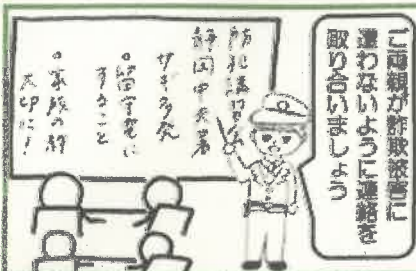 ご両親が詐欺被害に
遭わないように連絡を
取り合いましょう
防犯講習会
静岡中央署
サギ多発
◦留守電に
すること
◦家族の絆
大切に！